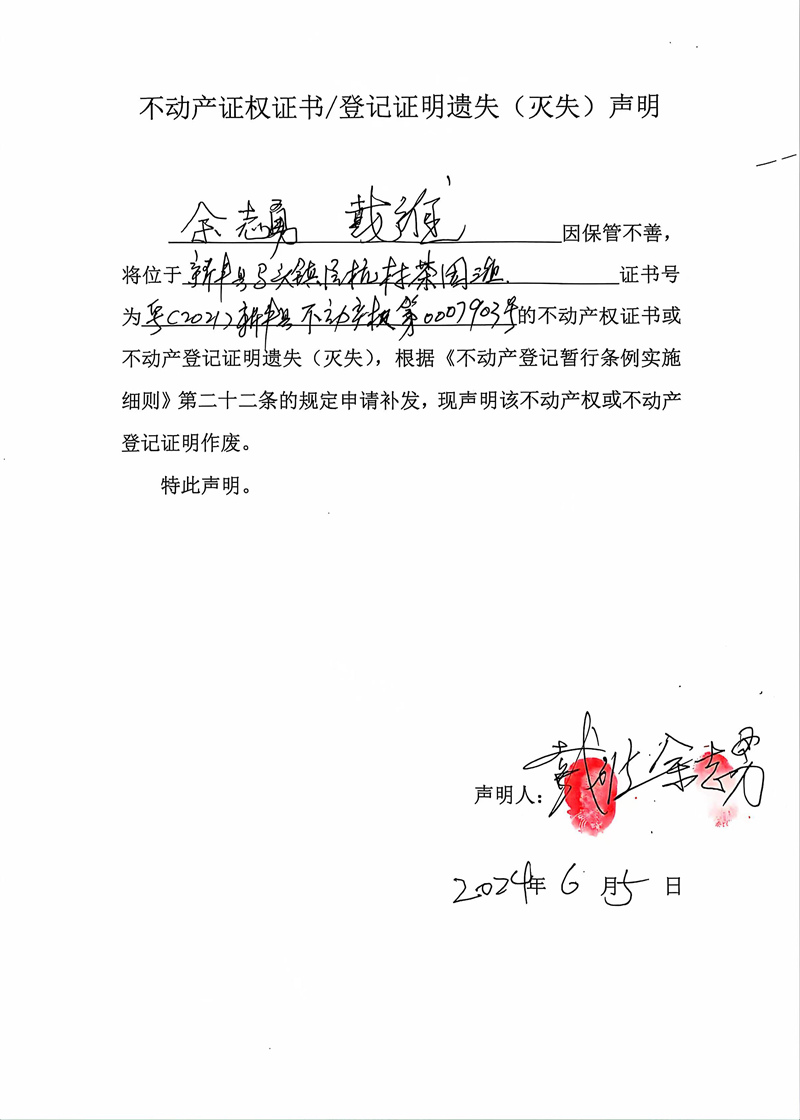 不动产证权证书/登记证明遗失（灭失）声明
余志勇 戴 因保管不善，
将位于新丰县马头镇 村茶园 证书号
为粤(2021)新丰县不动产权第0007903号的不动产权证书或
不动产登记证明遗失（灭失），根据《不动产登记暂行条例实施
细则》第二十二条的规定申请补发，现声明该不动产权或不动产
登记证明作废。
特此声明。
声明人：戴 余志勇
2024年6月5日